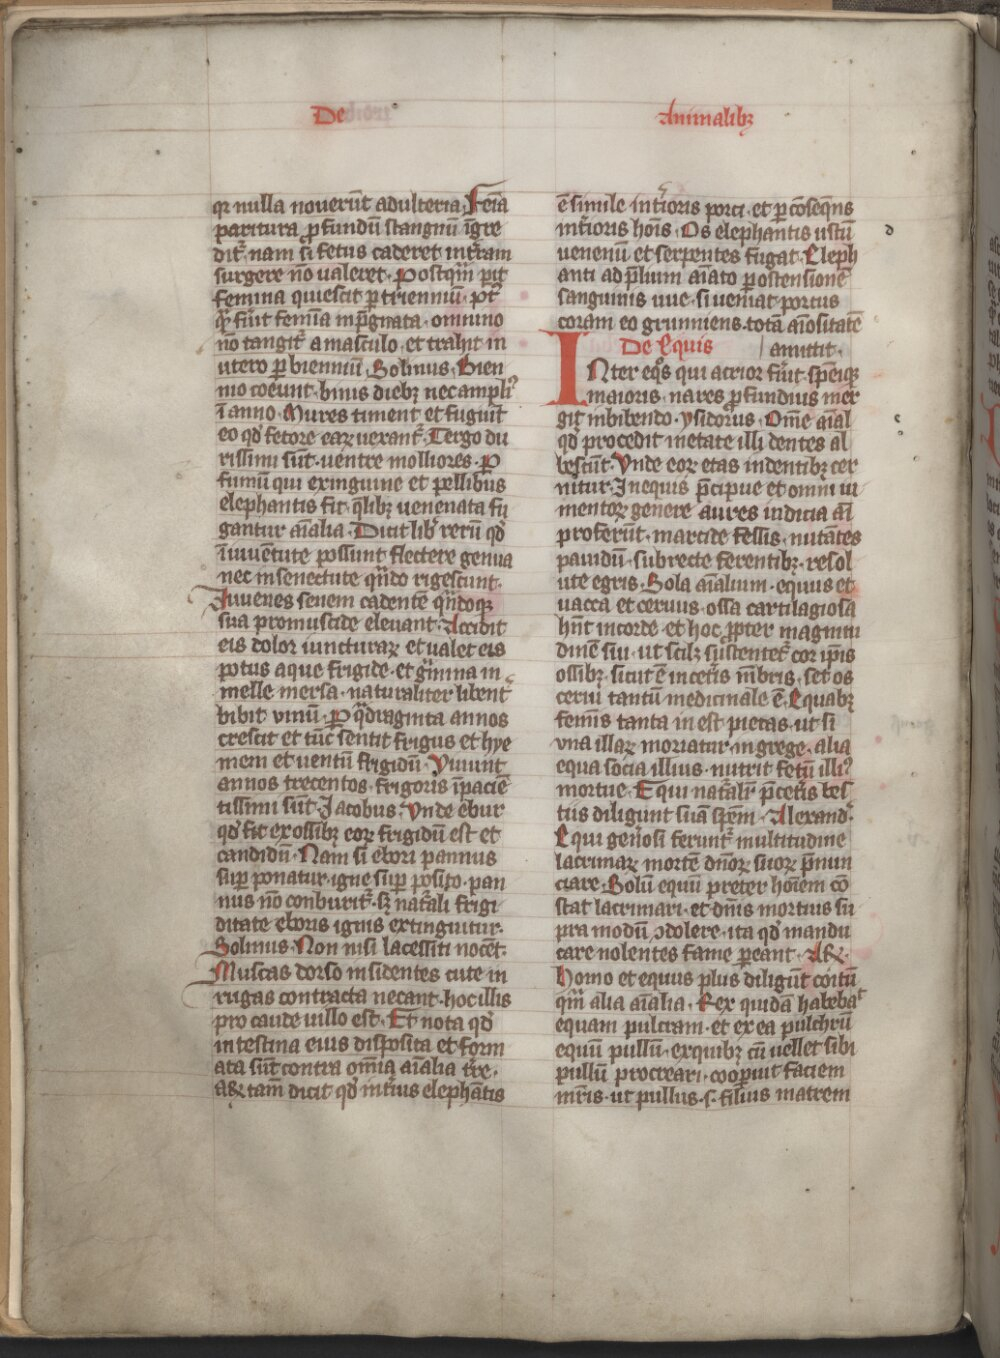 De
Animalibꝫ
qꝛ nulla nouerūt adulteria. Feīa
paritura ꝓfundū stangnū īgre
dit᷑. nam si fetus caderet int᷑ram
surgere nō ualeret. Postqm̄ pit
femina quiescit ꝑ trienniū. pt᷑
qͥ fūit femīa inp̄gnata. omnino
nō tangit᷑ a masculo. et trahit in
utero ꝑ bienniū. Solinus. Bien
nio coeunt. binis diebꝫ nec ampliꝰ
ī anno. Mures timent et fugiūt
eo qd̓ fetore eaꝝ uexant᷑. Tergo du
rissimi sūt. uentre molliores. P
fumū qui ex inguine et pellibus
elephantis fit. qͣlibꝫ uenenata fu
gantur aīalia. Dicit lib᷑ rerū qd̓
ī iuuētute possunt flectere genua
nec in senectute qn̄do rigescunt.
Iuuenes senem cadentē qn̄doqꝫ
sua promuscide eleuant. Accidit
eis dolor iuncturaꝝ et ualet eis
potus aque frigide. et gͣmina in
melle mersa. naturaliter libent᷑
bibit vinū. P qͣdraginta annos
crescit et tūc sentit frigus et hye
mem et uentū frigidū. Viuunt
annos trecentos. frigoris īpaciē
tissimi sūt. Jacobus. Vnde ebur
qd̓ fit ex ossibꝫ eoꝝ frigidū est et
candidū. Nam si ebori pannus
suꝑ ponatur. igne suꝑ posito. pan
nus nō conburit᷑. sꝫ nat᷑ali frigi
ditate eboris ignis extinguitur.
Solinus. Non nisi lacessiti nocēt.
Muscas dorso insidentes cute in
rugas contracta necant. hoc illis
pro caude uillo est. Et nota qd̓
intestina eius disposita et form
ata sūt contra om̄ia aīalia t᷑re.
a&ꝝ tam̄ dicit qd̓ int᷑ius elephātis
ē simile int᷑ioris porci. et ꝑ cōseqn̄s
int᷑ioris hōis. Os elephantis ustū
uenenū et serpentes fugat. Eleph
anti ad p̄lium aīato ꝑ ostensionē
sanguinis uue. si ueniat portus
coram eo grunniens. totā aīositatē
De Equis
amittit.
INter eqͦs qui acrior fūit. speīqꝫ
maioris. nares ꝓfundius mer
git in bibendo. ysidorus. Om̄e aīal
qd̓ procedit in etate illi dentes al
bescūt. Vnde eoꝝ etas in dentibꝫ cer
nitur. In equis p̄cipue et omni iu
mentoꝝ genere aures indicia aī
proferūt. marcide fessis. nutātes
pauidū. subrecte ferentibꝫ. resol
ute egris. Sola aīalium. equus et
uacca et ceruus. ossa cartilagiosa
hn̄t in corde. et hoc ꝓpter magnitu
dinē sui. ut scilꝫ sustentet᷑ cor ip̄is
ossibꝫ. sicut ē in cet᷑is mēbris. set os
cerui tantū medicinale ē. Equabꝫ
femīs tanta inest pietas. ut si
vna illaꝝ moriatur in grege. alia
equa socia illius. nutrit fetū illiꝰ
mortue. Equi nat᷑alr̄ p̄ cet᷑is bes
tiis diligunt suā spēm. Alexand᷑.
Equi gen᷑osi ferunt᷑ multitudine
lacrimaꝝ mortē dn̄oꝝ suoꝝ p̄nun
ciare. Solū equū preter hoīem cō
stat lacrimari. et dn̄is mortuis su
pra modū ↄdolere. ita qd̓ mandu
care nolentes fame ꝑeant. A&.
Homo et equus plus diligūt coitū
qm̄ alia aīalia. Rex quidā habebat
equam pulcram. et ex ea pulchrū
equū pullū. ex quibꝫ cū uellet sibi
pullū procreari. cooꝑuit faciem
mr̄is. ut pullus. s. filius matrem